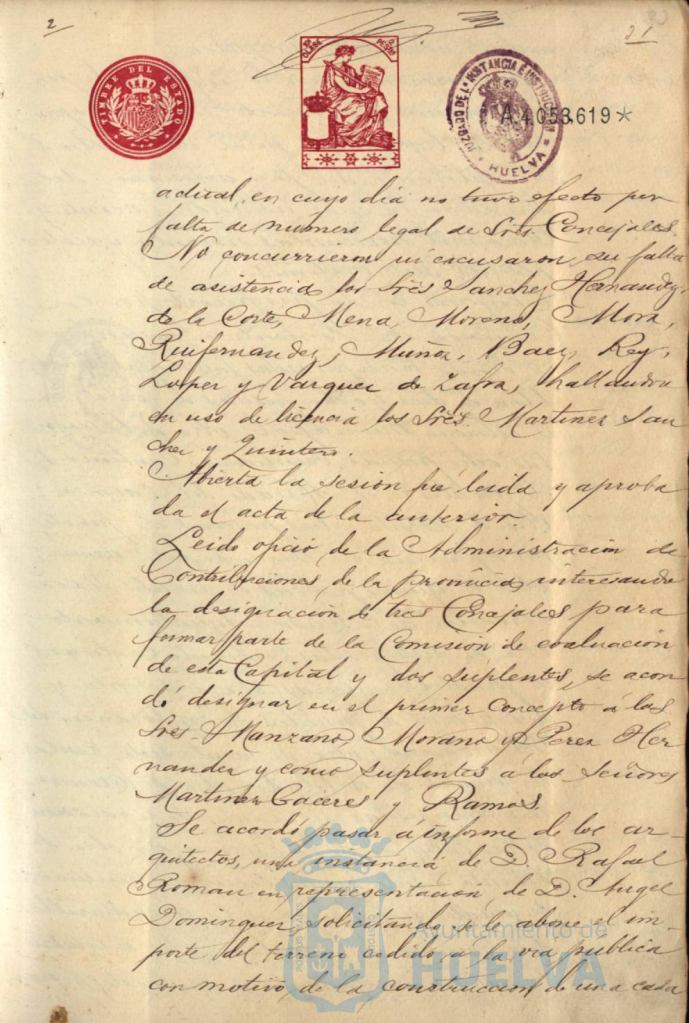 2
21
TIMBRE DEL ESTADO
CLASE
PESETAS
JUZGADO DE 1ª INSTANCIA É INSTRUCCION
HUELVA
A.4053.619*
actual, en cuyo dia no tuvo efecto por
falta de número legal de Sres. Concejales.
No concurrieron ni escusaron su falta
de asistencia los Sres Sanchez Hernandez,
de la Corte, Mena, Moreno, Mora,
Ruifernandez, Muñoz, Baez, Rey,
Lopez y Vazquez de Zafra, hallandose
en uso de licencia los Sres. Martinez San
chez y Quintero.
Abierta la sesion fué leida y aproba
da el acta de la anterior.
Leido oficio de la Administracion de
Contribuciones de la provincia, interesando
la designacion de tres Concejales para
formar parte de la Comision de evaluacion
de esta Capital y dos suplentes, se acor
dó designar en el primer concepto á los
Sres. Manzano, Morano y Perez Her
nandez y como suplentes á los Señores
Martinez Caceres y Ramos.
Se acordó pasar á informe de los ar-
quitectos, una instancia de D. Rafael
Roman en representacion de D. Angel
Dominguez, solicitando se le abone el im-
porte del terreno cedido á la via publica
con motivo de la construccion de una casa
Ayuntamiento de
HUELVA